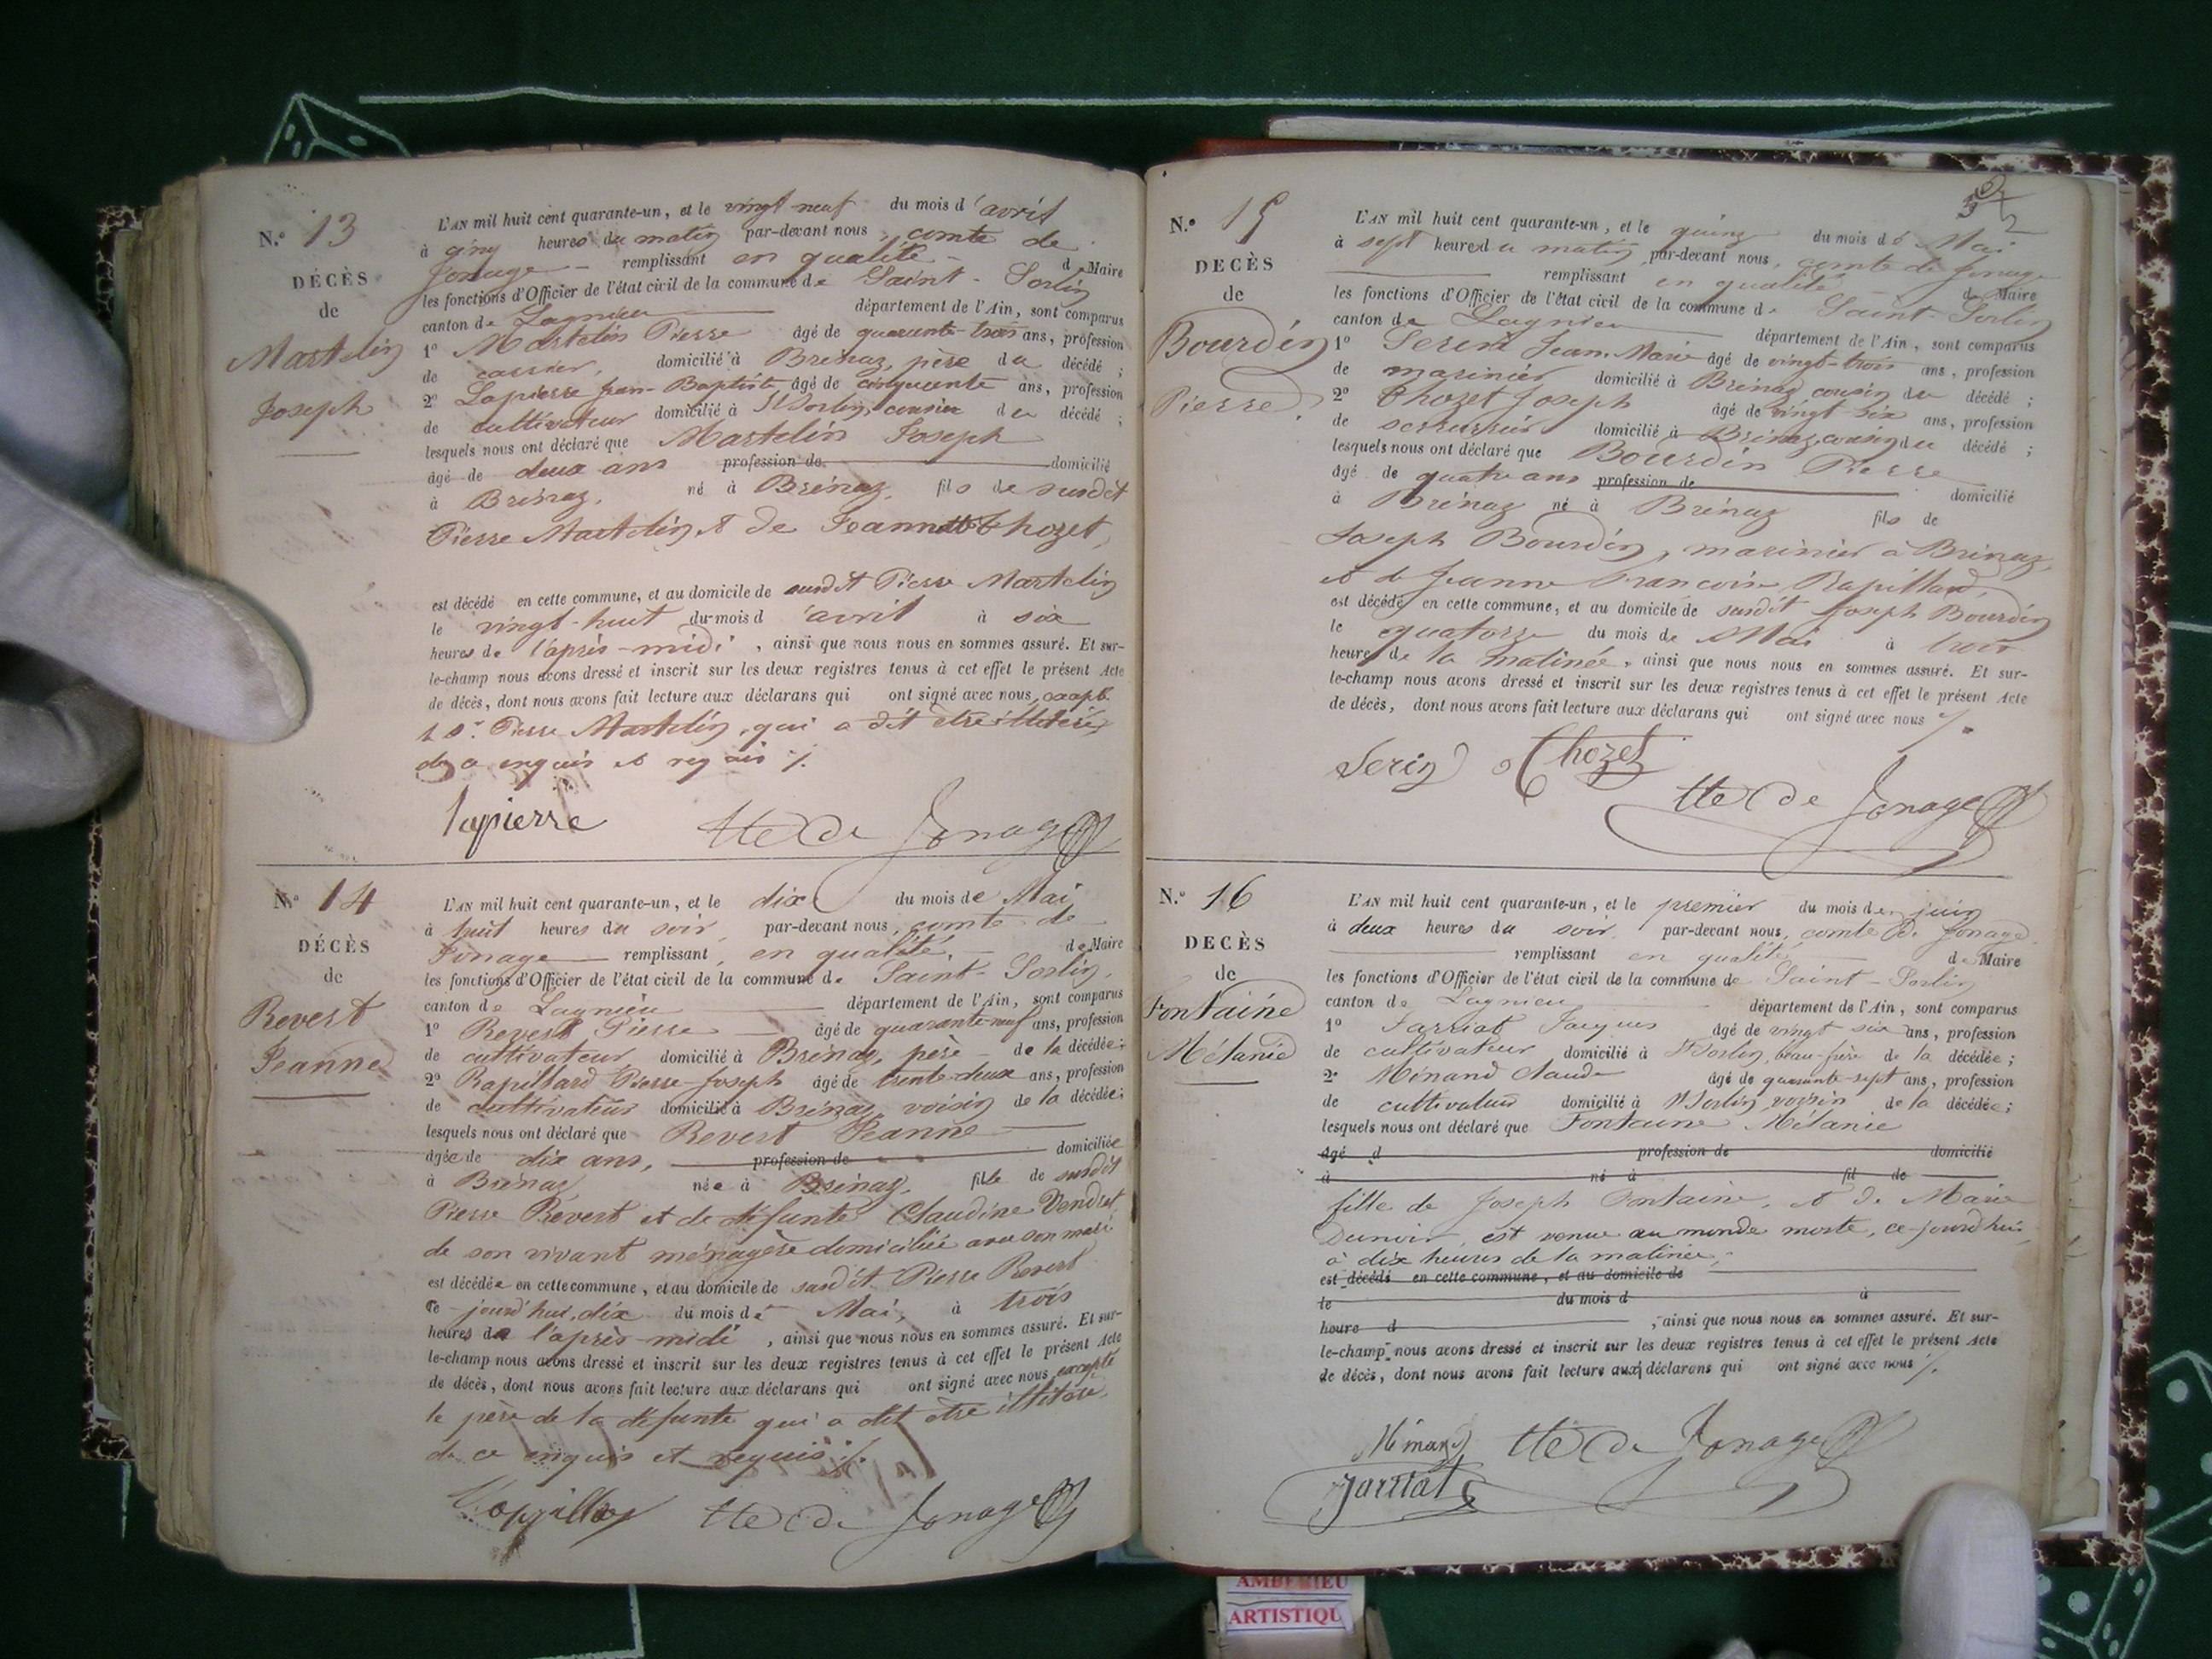 N.º 13
DÉCÈS
de
Martelin
Joseph
L'AN mil huit cent quarante-un, et le vingt-neuf du mois d'avril
à cinq heures du matin par-devant nous, comte de
Jonage remplissant en qualité de Maire
les fonctions d'Officier de l'état civil de la commune de Saint-Sorlin
canton de Lagnieu département de l'Ain, sont comparus
1º Martelin Pierre âgé de quarante-trois ans, profession
de carrier, domicilié à Brénaz, père du décédé ;
2º Lapierre Jean-Baptiste âgé de cinquante ans, profession
de cultivateur domicilié à St Sorlin, cousin du décédé ;
lesquels nous ont déclaré que Martelin Joseph
âgé de deux ans profession de domicilié
à Brénaz, né à Brénaz, fils de susdit
Pierre Martelin et de Jeannette Chozet,
est décédé en cette commune, et au domicile de susdit Pierre Martelin
le vingt-huit du mois d'avril à six
heures de l'après-midi, ainsi que nous nous en sommes assuré. Et sur-
le-champ nous avons dressé et inscrit sur les deux registres tenus à cet effet le présent Acte
de décès, dont nous avons fait lecture aux déclarans qui ont signé avec nous, except.
Pierre Martelin, qui a dit être illitéré
de ce enquis et requis ./.
Lapierre
Cte de Jonage
N.º 14
DÉCÈS
de
Revert
Jeanne
L'AN mil huit cent quarante-un, et le dix du mois de Mai
à huit heures du soir, par-devant nous, comte de
Jonage remplissant, en qualité, de Maire
les fonctions d'Officier de l'état civil de la commune de Saint-Sorlin,
canton de Lagnieu département de l'Ain, sont comparus
1º Revert Pierre âgé de quarante-neuf ans, profession
de cultivateur domicilié à Brénaz, père de la décédée ;
2º Rapillard Pierre-Joseph âgé de trente-deux ans, profession
de cultivateur domicilié à Brénaz, voisin de la décédée ;
lesquels nous ont déclaré que Revert Jeanne
âgée de dix ans, profession de domiciliée
à Brénaz, née à Brénaz, fille de susdit
Pierre Revert et de défunte Claudine Vendret,
de son vivant ménagère domiciliée avec son mari
est décédée en cette commune, et au domicile de susdit Pierre Revert
ce-jourd'hui, dix du mois de Mai, à trois
heures de l'après-midi, ainsi que nous nous en sommes assuré. Et sur-
le-champ nous avons dressé et inscrit sur les deux registres tenus à cet effet le présent Acte
de décès, dont nous avons fait lecture aux déclarans qui ont signé avec nous, excepté
le père de la défunte qui a dit être illitéré,
de ce enquis et requis ./.
Cte de Jonage
N.º 15
DECÈS
de
Bourdin
Pierre.
L'AN mil huit cent quarante-un, et le quinze du mois de Mai
à sept heures du matin, par-devant nous, comte de Jonage
remplissant en qualité de Maire
les fonctions d'Officier de l'état civil de la commune de Saint-Sorlin
canton de Lagnieu département de l'Ain, sont comparus
1º Serin Jean-Marie âgé de vingt-trois ans, profession
de marinier domicilié à Brénaz, cousin du décédé ;
2º Chozet Joseph âgé de vingt six ans, profession
de serrurier domicilié à Brénaz, cousin du décédé ;
lesquels nous ont déclaré que Bourdin Pierre
âgé de quatre ans profession de domicilié
à Brénaz né à Brénaz fils de
Joseph Bourdin, marinier à Brénaz,
et de Jeanne Françoise Rapillard,
est décédé en cette commune, et au domicile de susdit Joseph Bourdin
le quatorze du mois de Mai à trois
heures de la matinée, ainsi que nous nous en sommes assuré. Et sur-
le-champ nous avons dressé et inscrit sur les deux registres tenus à cet effet le présent Acte
de décès, dont nous avons fait lecture aux déclarans qui ont signé avec nous ./.
Serin Chozet
Cte de Jonage
N.º 16
DECÈS
de
Fontaine
Mélanie
L'AN mil huit cent quarante-un, et le premier du mois de juin
à deux heures du soir, par-devant nous, comte de Jonage
remplissant en qualité de Maire
les fonctions d'Officier de l'état civil de la commune de Saint-Sorlin
canton de Lagnieu département de l'Ain, sont comparus
1º Jarriat Jacques âgé de vingt six ans, profession
de cultivateur domicilié à St Sorlin, beau-frère de la décédée ;
2º Ménand Claude âgé de quarante-sept ans, profession
de cultivateur domicilié à St Sorlin, voisin de la décédée ;
lesquels nous ont déclaré que Fontaine Mélanie
âgé d profession de domicilié
à né à fil de
fille de Joseph Fontaine, et de Marie
Dunoir, est venue au monde morte, ce-jourd'hui
à dix heures de la matinée,
est décédé en cette commune, et au domicile de
le du mois d à
heure d, ainsi que nous nous en sommes assuré. Et sur-
le-champ nous avons dressé et inscrit sur les deux registres tenus à cet effet le présent Acte
de décès, dont nous avons fait lecture aux déclarans qui ont signé avec nous ./.
Ménand Cte de Jonage
Jarriat
AMBERIEU
ARTISTIQU